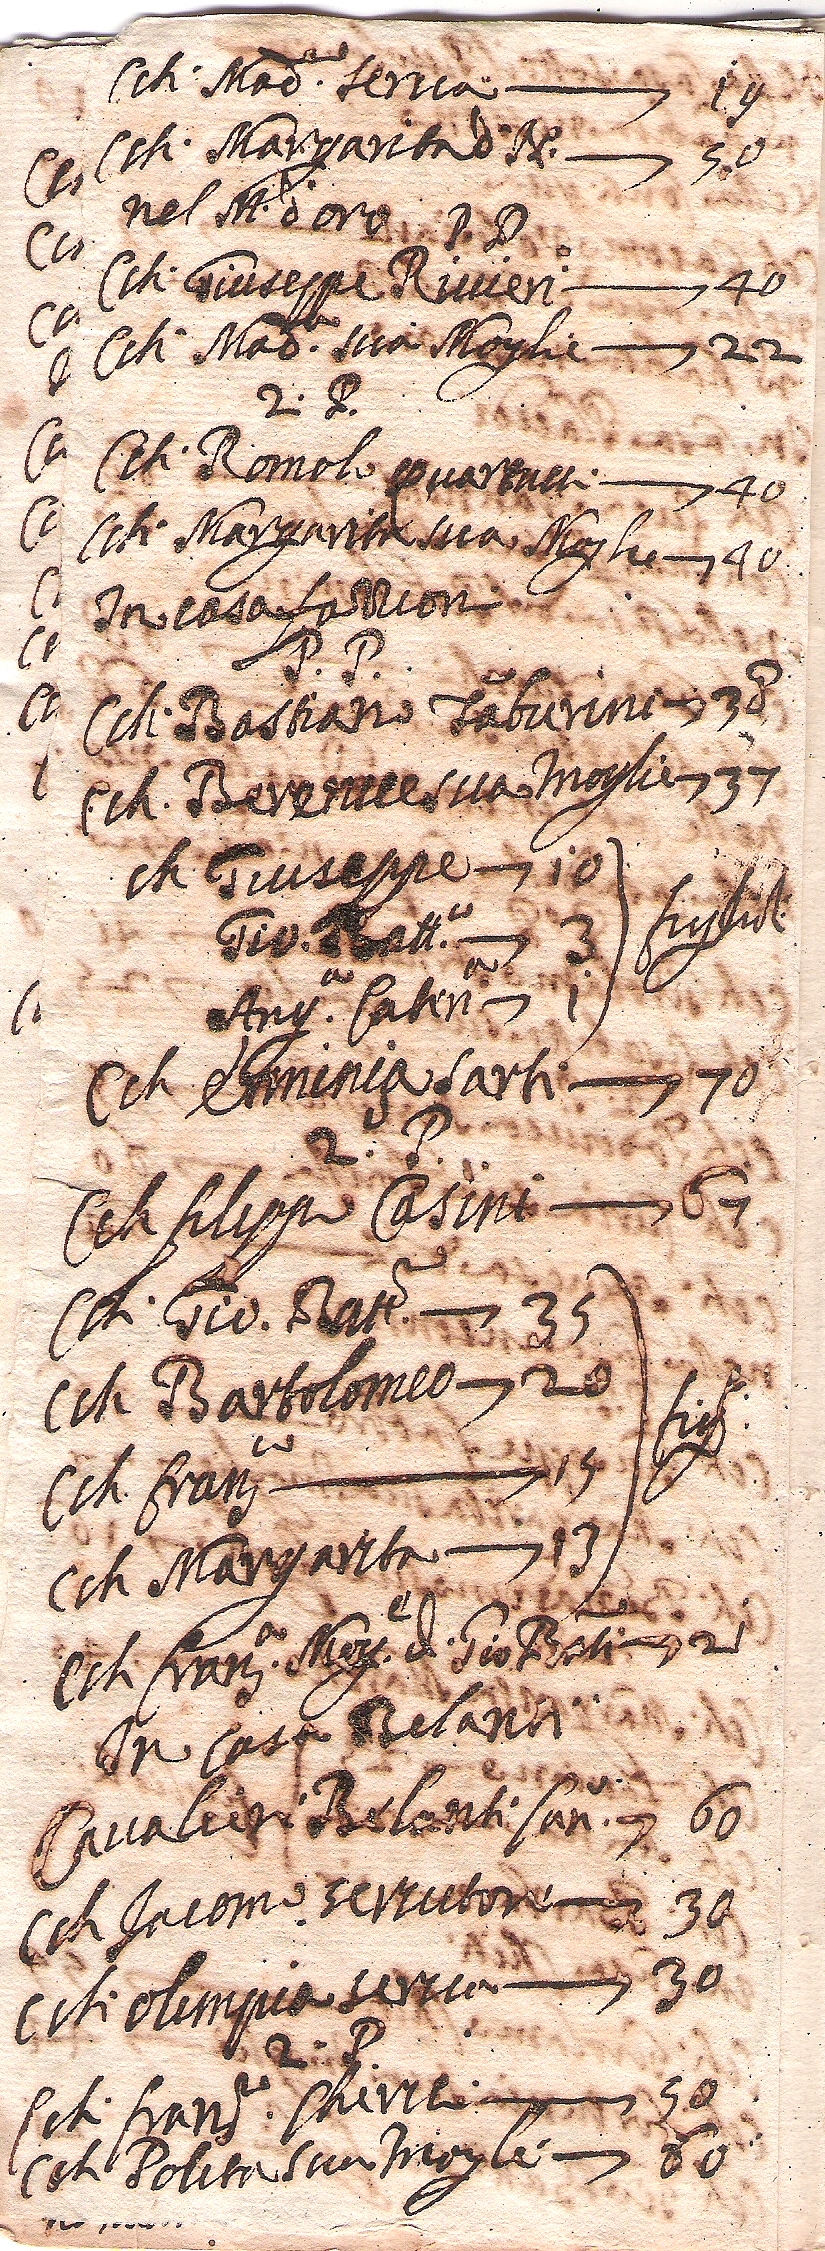 Cch. Mad.ª serva 19
Cch. Margarita d. N. 50
nel M. d'oro P. P.
Cch. Giuseppe Rivieri 40
Cch. Mad.ª sua Moglie 22
2. P.
Cch. Romolo quartucci 40
Cch. Margarita sua Moglie 40
In casa
P. P.
Cch. Bastiano Tãburini 38
Cch. Berenice sua Moglie 37
ch Giuseppe 10
Gio. Batt.ª 3 figlioli
Ang.ª Caterª 1
Cch Erminia Sarti 70
2. P.
Cch filippa Casini 67
Cch. Gio. Battª 35
Cch Bartolomeo 20
Cch franc.º 15 figl.
Cch Margarita 13
Cch franc.ª Mog.e d. Gio Batt. 21
In casa Belanti
Cavalieri Belanti 60
Cch Jacomo servitore 30
Cch. olimpia serva 30
2. P.
Cch. franc.º 50
Cch Polita sua Moglie 60